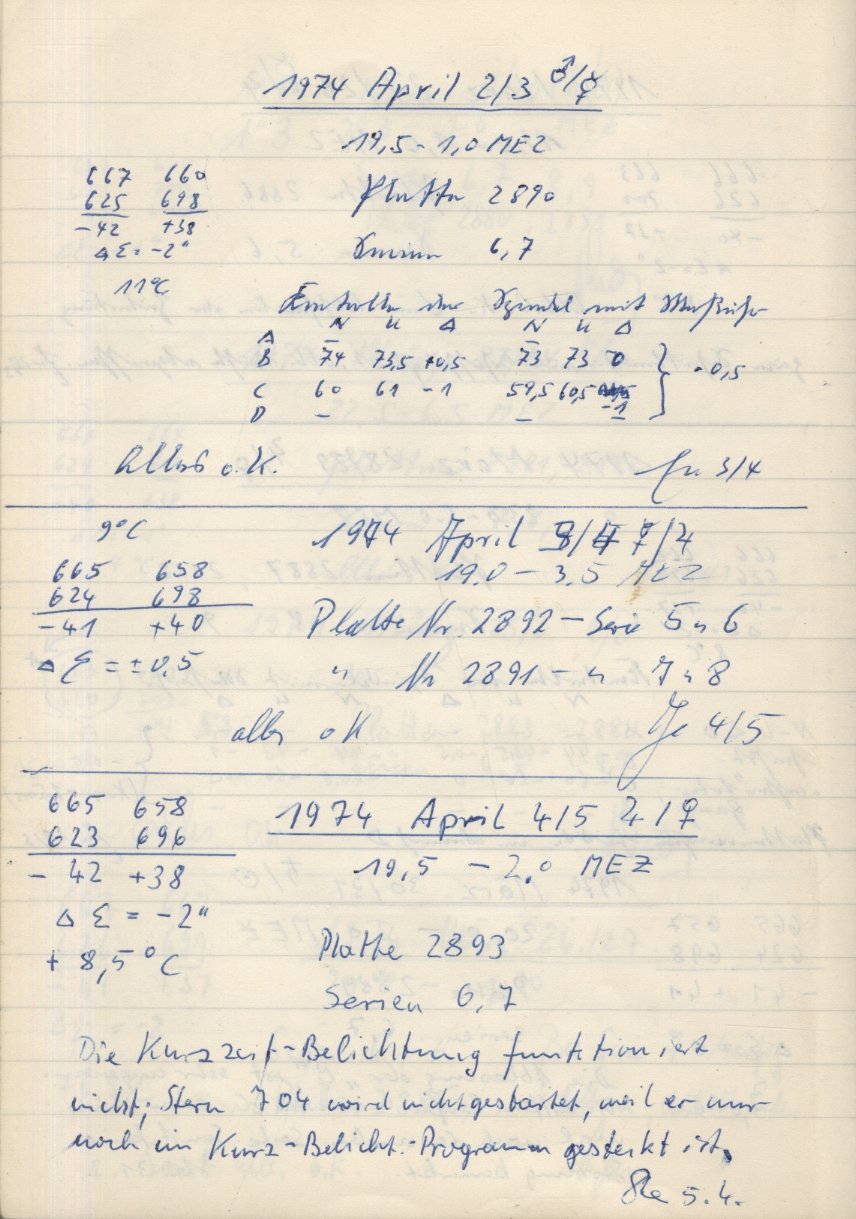 1974 April 2/3 ♂/☿
19,5 - 1,0 MEZ
667 660
625 698
-42 +38
Δ Σ = -2"
11°C
Platte 2890
Serien 6,7
Kontrolle der Spindel mit Meßuhr
N U Δ N U Δ
A - -
B 74 73,5 +0,5 73 73 0
C 60 61 -1 59,5 60,5 -1
D - -
-0,5
Alles o.K.
3/4
9°C
1974 April 3/4 ☿/♃
19,0 - 3,5 MEZ
665 658
624 698
-41 +40
Δ Σ = ±0,5
Platte Nr. 2892 - Serie 5 u 6
" Nr 2891 - " 7 u 8
alles oK
4/5
665 658
623 696
- 42 +38
Δ Σ = -2"
+ 8,5°C
1974 April 4/5 ♃/♀
19,5 - 2,0 MEZ
Platte 2893
Serien 6,7
Die Kurzzeit-Belichtung funktioniert
nicht; Stern 704 wird nicht gestartet, weil er nur
noch im Kurz-Belicht.-Programm gesteckt ist.
5.4.